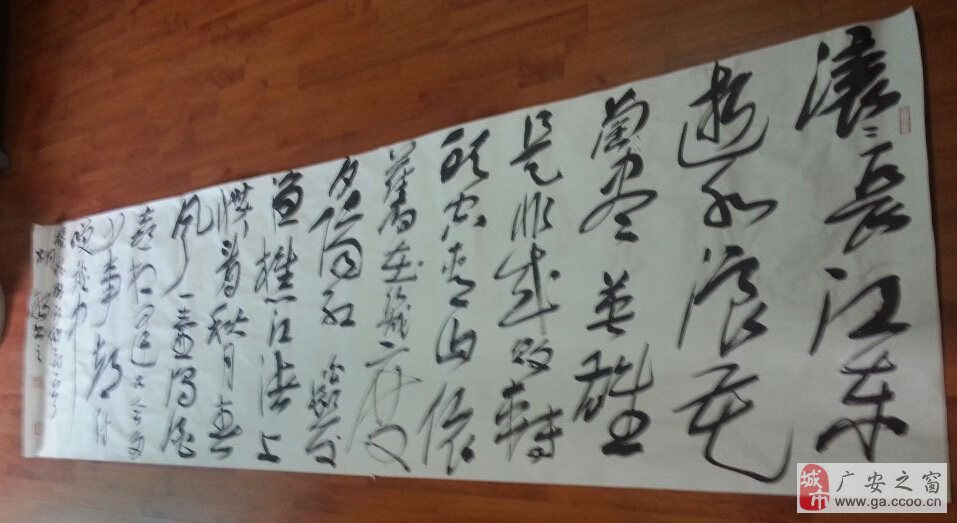 滚滚长江东
逝水浪花
淘尽英雄
是非成败转
头空青山依
旧在几度夕
阳红白发
渔樵江渚上
惯看秋月春
风一壶浊酒
喜相逢古今多
少事都付
笑谈中
城市
广安之窗
www.ga.ccoo.cn